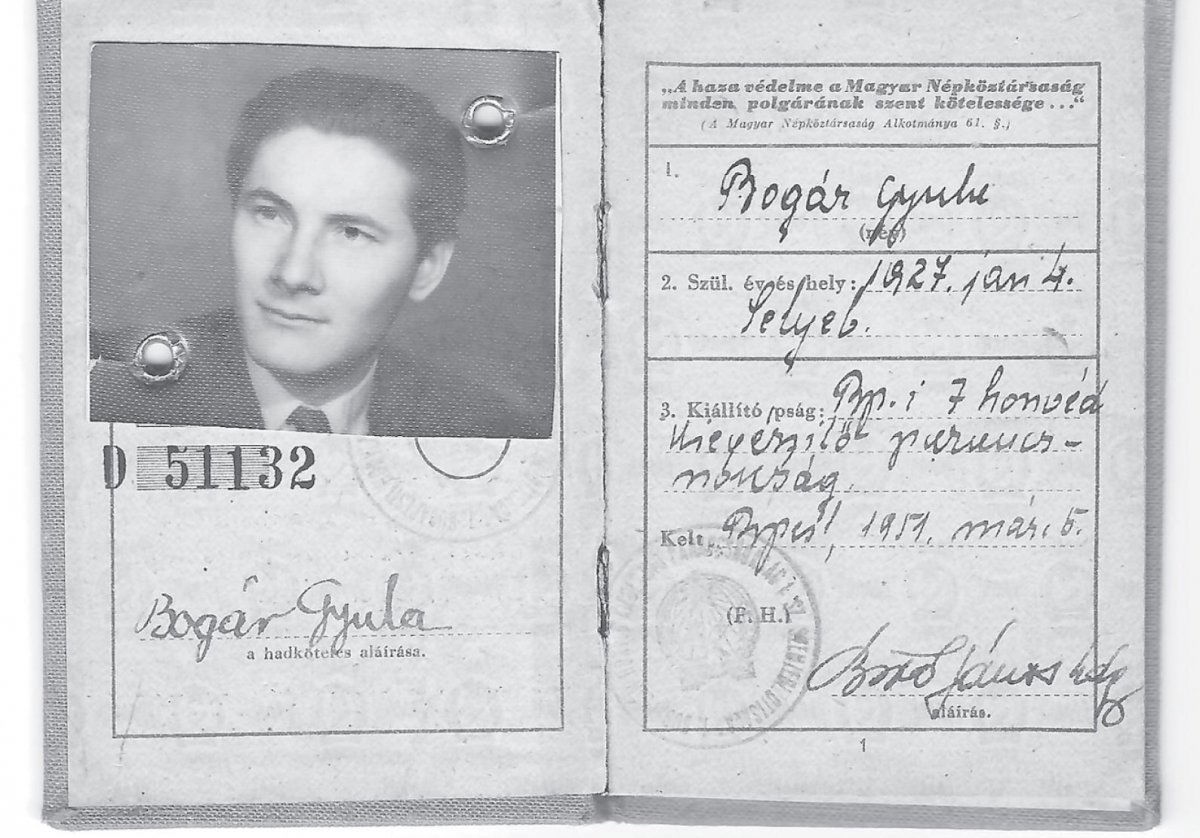 D 51132
Bogár Gyula
a hadköteles aláírása.
„A haza védelme a Magyar Népköztársaság
minden polgárának szent kötelessége..."
(A Magyar Népköztársaság Alkotmánya 61. §.)
1. Bogár Gyula
(név)
2. Szül. év és hely: 1927. jan 4.
Selyeb.
3. Kiállító pság: Bp. i 7 honvéd
kiegészítő parancs-
nokság.
Kelt Bpest, 1951. már. 5.
(P. H.)
János hdgy
aláírás.
1